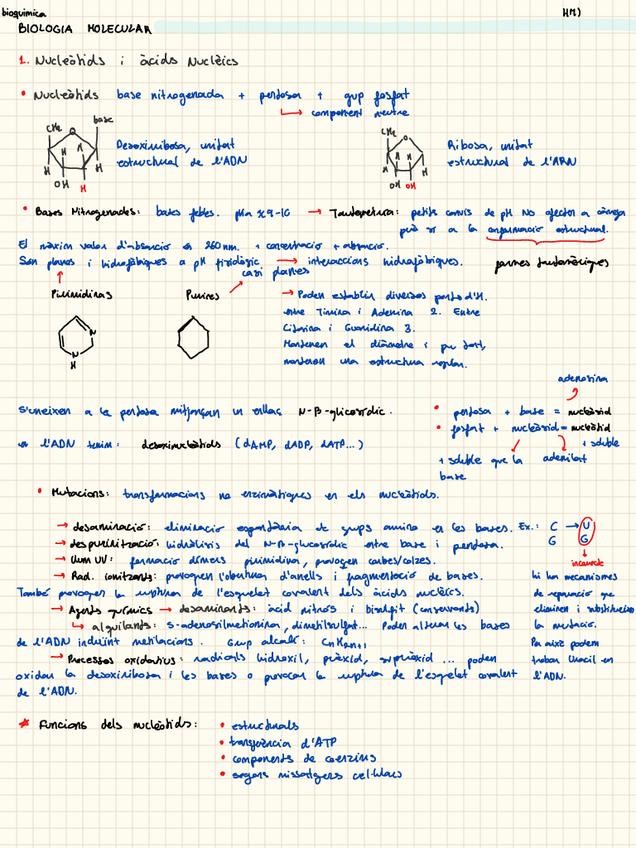 bioquímica
H(1)
BIOLOGIA MOLECULAR
1. Nucleòtids i àcids Nuclèics
• Nucleòtids base nitrogenada + pentosa + grup fosfat
↳ component neutre
CH₂ O base
H H
OH H
Desoxiribosa, unitat
estructural de l'ADN
CH₂ O
H H
OH OH
Ribosa, unitat
estructural de l'ARN
• Bases Nitrogenades: bases febles. pKa ≈ 9-10 → Tautomeria: petits canvis de pH NO afecten a càrrega
però sí a la conformació estructural.
El màxim valor d'absorció és 260nm. ↑ concentració ↑ absorció.
Són planes i hidrofòbiques a pH fisiològic → interaccions hidrofòbiques.
formes tautomèriques
casi planes
Pirimidines
Purines
N
N
H
→ Poden establir diversos ponts d'H.
entre Timina i Adenina 2. Entre
Citosina i Guanidina 3.
Mantenen el diàmetre i per tant,
mantenen una estructura regular.
adenosina
S'uneixen a la pentosa mitjançant un enllaç N-β-glicosídic.
• pentosa + base = nucleòsid
• fosfat + nucleòsid = nucleòtid
+ soluble
en l'ADN tenim: desoxinucleòtids (dAMP, dADP, dATP...)
+ soluble que la
base
adenilat
• Mutacions: transformacions no enzimàtiques en els nucleòtids.
→ desaminació: eliminació espontània de grups amino en les bases. Ex.: C → U
G G
→ despurinització: hidròlisis del N-β-glucosídic entre base i pentosa.
incorrecte
→ Llum UV: formació dímers pirimidina, provoquen corbes/colzes.
→ Rad. ionitzants: provoquen l'obertura d'anells i fragmentació de bases.
També provoquen la ruptura de l'esquelet covalent dels àcids nuclèics.
→ Agents químics → desaminants: àcid nitrós i bisulfit (conservants)
↳ alquilants: S-adenosilmetionina, dimetilsulfat... Poden alterar les bases
de l'ADN induint metilacions. Grup alcalí: CnH2n+1
→ Processos oxidatius: radicals hidroxil, peròxid, superòxid ... poden
oxidar la desoxiribosa i les bases o provocar la ruptura de l'esquelet covalent
de l'ADN.
hi ha mecanismes
de reparació que
eliminen i substitueixen
la mutació.
Per això podem
trobar Uracil en
l'ADN.
* Funcions dels nucleòtids:
• estructurals
• transferència d'ATP
• components de coenzims
• segons missatgers cel·lulars